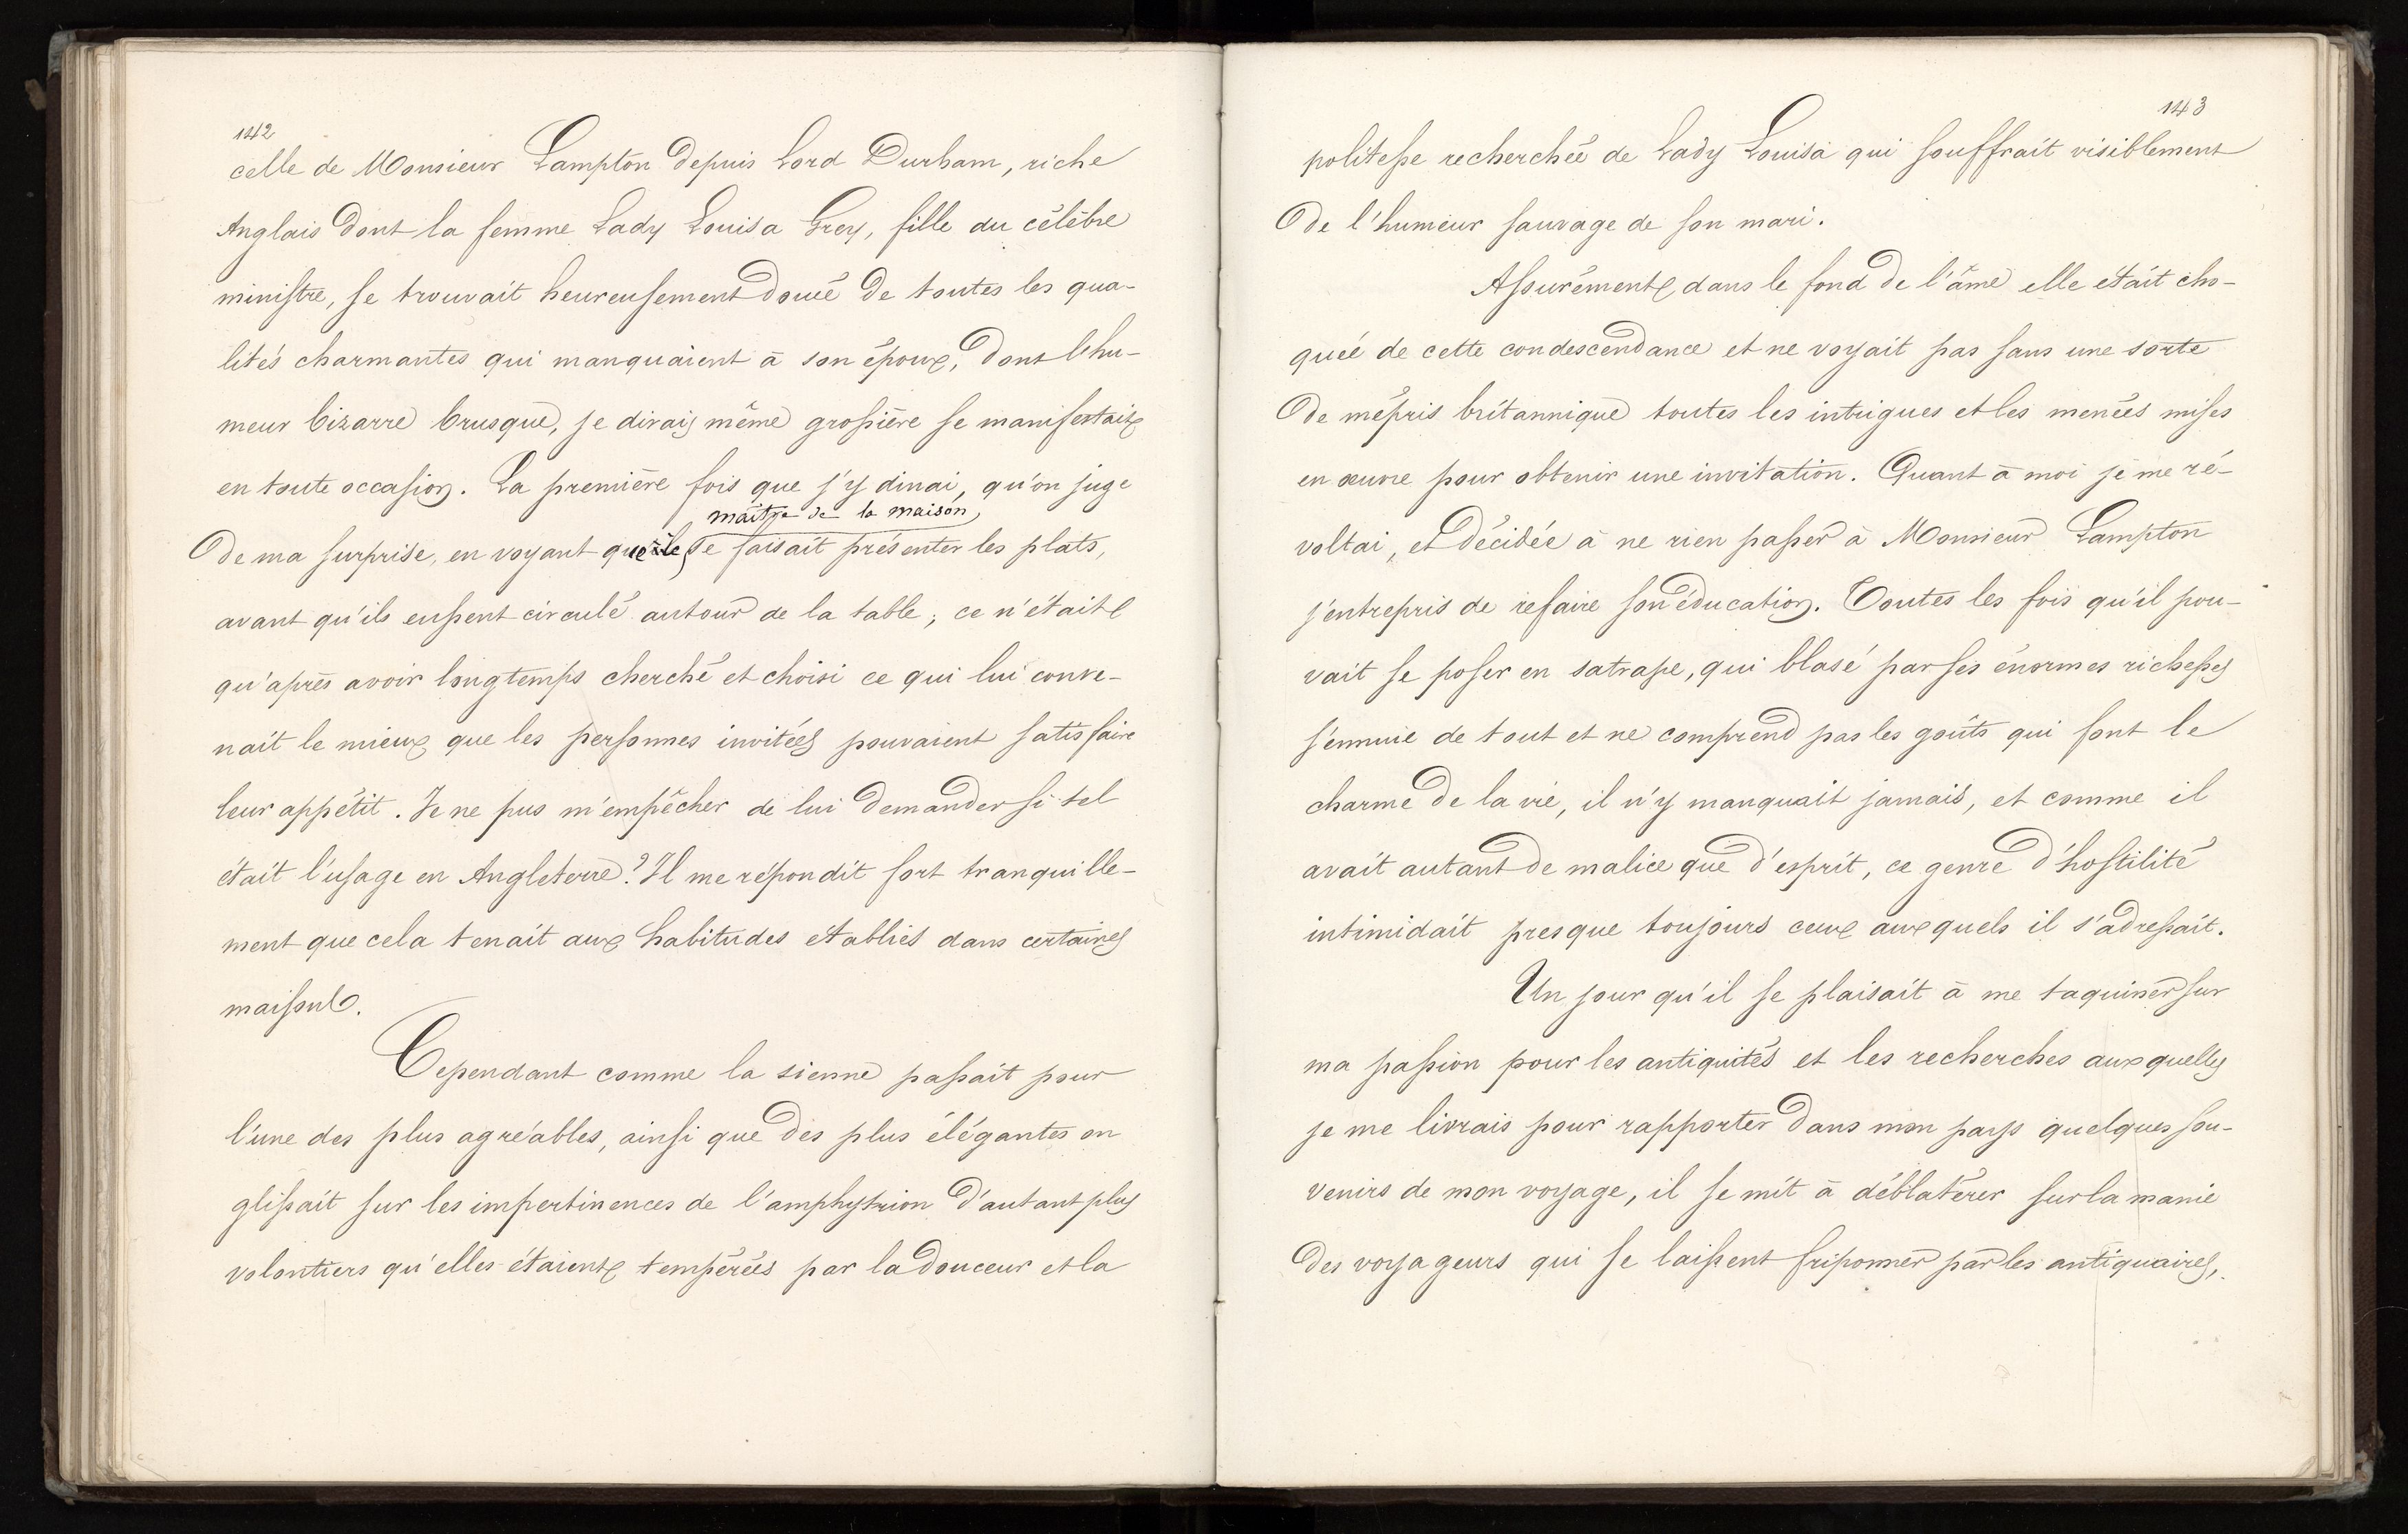 142
celle de Monsieur Lampton depuis Lord Durham, riche
Anglais dont la femme Lady Louisa Grey, fille du célèbre
ministre, se trouvait heureusement doueé de toutes les qua-
lités charmantes qui manquaient à son époux, dont l'hu-
meur bizarre brusque, je dirais même grossière se manifestait
en toute occasion. La première fois que j'y dinai, qu'on juge
maître de la maison
de ma surprise, en voyant que le se faisait présenter les plats,
avant qu'ils eussent circulé autour de la table; ce n'était
qu'après avoir longtemps cherché et choisi ce qui lui conve-
nait le mieux que les personnes invitées pouvaient satisfaire
leur appétit. Je ne pus m'empêcher de lui demander si tel
était l'usage en Angleterre? Il me répondit fort tranquille-
ment que cela tenait aux habitudes établies dans certaines
maisons.
Cependant comme la sienne passait pour
l'une des plus agréables, ainsi que des plus élégantes on
glissait sur les impertinences de l'amphytrion d'autant plus
volontiers qu'elles étaient tempérées par la douceur et la
143
politesse recherchée de Lady Louisa qui souffrait visiblement
de l'humeur sauvage de son mari.
Assurément dans le fond de l'âme elle était cho-
quée de cette condescendance et ne voyait pas sans une sorte
de mépris britannique toutes les intrigues et les menées mises
en œuvre pour obtenir une invitation. Quant à moi je me ré-
voltai, et décidée à ne rien passer à Monsieur Lampton
j'entrepris de refaire son éducation. Toutes les fois qu'il pou-
vait se poser en satrape, qui blasé par ses énormes richesses
s'ennuie de tout et ne comprend pas les goûts qui font le
charme de la vie, il n'y manquait jamais, et comme il
avait autant de malice que d'esprit, ce genre d'hostilité
intimidait presque toujours ceux auxquels il s'adressait.
Un jour qu'il se plaisait à me taquiner sur
ma passion pour les antiquités et les recherches auxquelles
je me livrais pour rapporter dans mon pays quelques sou-
venirs de mon voyage, il se mit à déblatérer sur la manie
des voyageurs qui se laissent friponner par les antiquaires,